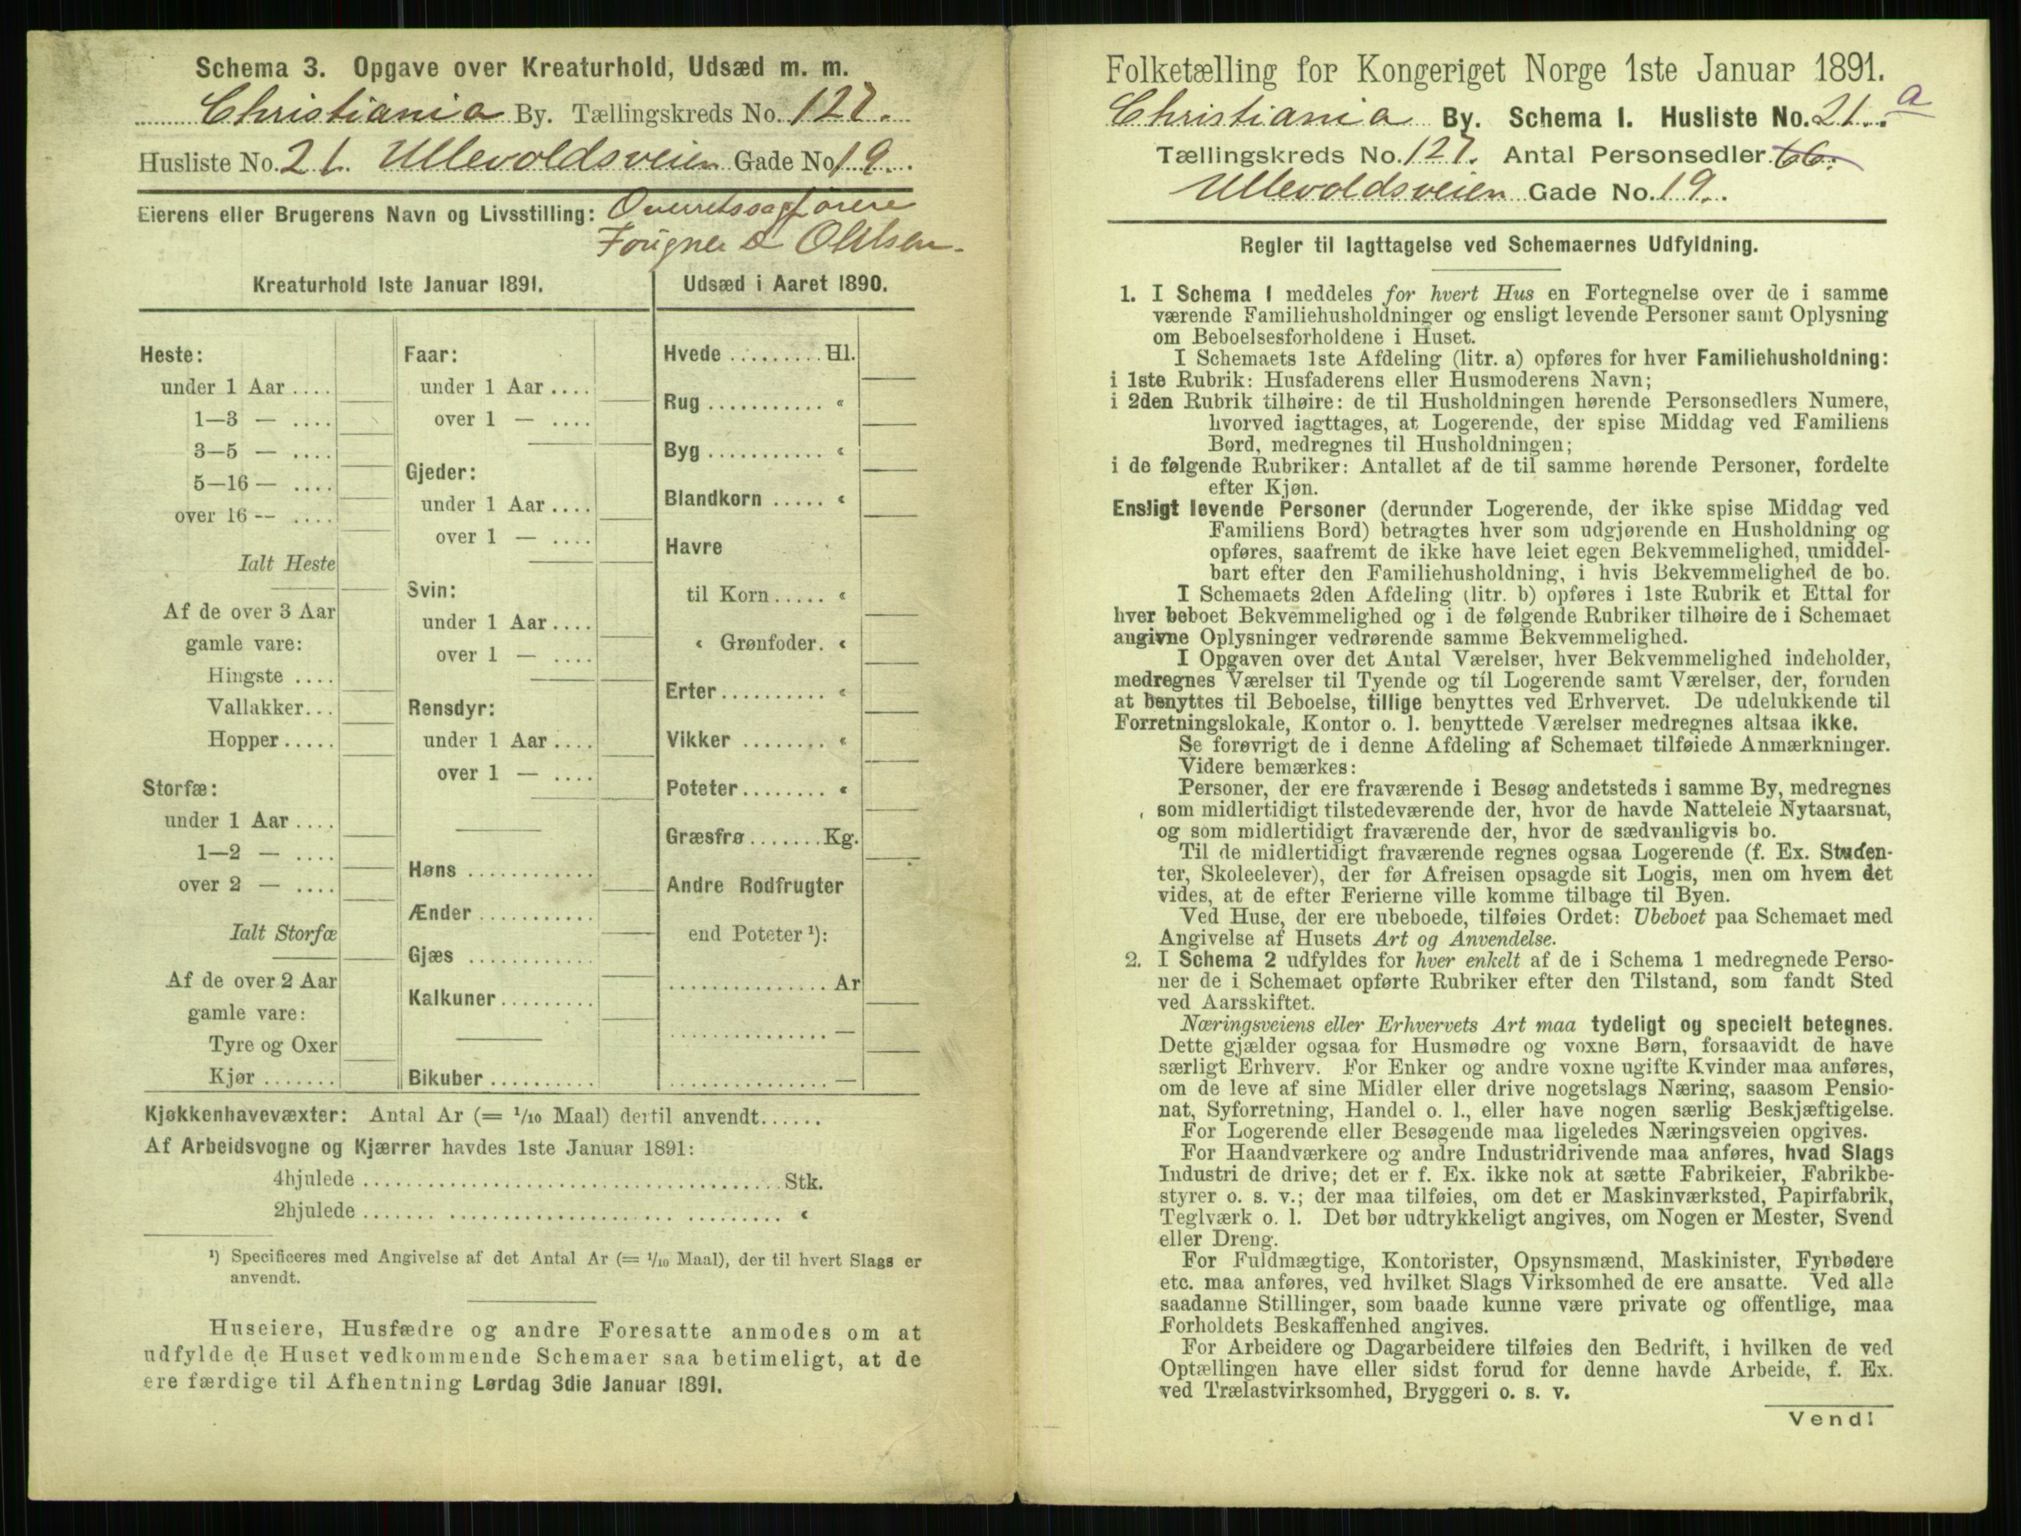 Schema 3. Opgave over Kreaturhold, Udsæd m. m.
Christiania By. Tællingskreds No. 127.
Husliste No. 21. Ullevoldsveien Gade No 19.
Eierens eller Brugerens Navn og Livsstilling: Overretssagførere
Fougner & Ohlsen.
Kreaturhold 1ste Januar 1891.
Heste:
under 1 Aar ....
1—3 — ....
3—5 — ....
5—16 — ....
over 16 — ....
Ialt Heste
Af de over 3 Aar
gamle vare:
Hingste ....
Vallakker...
Hopper.....
Storfæ:
under 1 Aar ....
1—2 — ....
over 2 — ....
Ialt Storfæ
Af de over 2 Aar
gamle vare:
Tyre og Oxer
Kjør .......
Faar:
under 1 Aar ....
over 1 — ....
Gjeder:
under 1 Aar ....
over 1 — ....
Svin:
under 1 Aar ....
over 1 — ....
Rensdyr:
under 1 Aar ....
over 1 — ....
Høns ............
Ænder ...........
Gjæs ............
Kalkuner .........
Bikuber ..........
Udsæd i Aaret 1890.
Hvede ......... Hl.
Rug ........... «
Byg ........... «
Blandkorn ..... «
Havre
til Korn ..... «
« Grønfoder. «
Erter .......... «
Vikker ........ «
Poteter ........ «
Græsfrø ....... Kg.
Andre Rodfrugter
end Poteter ¹):
............... Ar
............... —
............... —
Kjøkkenhavevæxter: Antal Ar (= 1/10 Maal) dertil anvendt......
Af Arbeidsvogne og Kjærrer havdes 1ste Januar 1891:
4hjulede ........................................ Stk.
2hjulede ........................................ «
¹) Specificeres med Angivelse af det Antal Ar (= 1/10 Maal), der til hvert Slags er
anvendt.
Huseiere, Husfædre og andre Foresatte anmodes om at
udfylde de Huset vedkommende Schemaer saa betimeligt, at de
ere færdige til Afhentning Lørdag 3die Januar 1891.
Folketælling for Kongeriget Norge 1ste Januar 1891.
Christiania By. Schema 1. Husliste No. 21. a
Tællingskreds No. 127. Antal Personsedler 66.
Ullevoldsveien Gade No. 19.
Regler til Iagttagelse ved Schemaernes Udfyldning.
1. I Schema 1 meddeles for hvert Hus en Fortegnelse over de i samme
værende Familiehusholdninger og ensligt levende Personer samt Oplysning
om Beboelsesforholdene i Huset.
I Schemaets 1ste Afdeling (litr. a) opføres for hver Familiehusholdning:
i 1ste Rubrik: Husfaderens eller Husmoderens Navn;
i 2den Rubrik tilhøire: de til Husholdningen hørende Personsedlers Numere,
hvorved iagttages, at Logerende, der spise Middag ved Familiens
Bord, medregnes til Husholdningen;
i de følgende Rubriker: Antallet af de til samme hørende Personer, fordelte
efter Kjøn.
Ensligt levende Personer (derunder Logerende, der ikke spise Middag ved
Familiens Bord) betragtes hver som udgjørende en Husholdning og
opføres, saafremt de ikke have leiet egen Bekvemmelighed, umiddel-
bart efter den Familiehusholdning, i hvis Bekvemmelighed de bo.
I Schemaets 2den Afdeling (litr. b) opføres i 1ste Rubrik et Ettal for
hver beboet Bekvemmelighed og i de følgende Rubriker tilhøire de i Schemaet
angivne Oplysninger vedrørende samme Bekvemmelighed.
I Opgaven over det Antal Værelser, hver Bekvemmelighed indeholder,
medregnes Værelser til Tyende og til Logerende samt Værelser, der, foruden
at benyttes til Beboelse, tillige benyttes ved Erhvervet. De udelukkende til
Forretningslokale, Kontor o. l. benyttede Værelser medregnes altsaa ikke.
Se forøvrigt de i denne Afdeling af Schemaet tilføiede Anmærkninger.
Videre bemærkes:
Personer, der ere fraværende i Besøg andetsteds i samme By, medregnes
som midlertidigt tilstedeværende der, hvor de havde Natteleie Nytaarsnat,
og som midlertidigt fraværende der, hvor de sædvanligvis bo.
Til de midlertidigt fraværende regnes ogsaa Logerende (f. Ex. Studen-
ter, Skoleelever), der før Afreisen opsagde sit Logis, men om hvem det
vides, at de efter Ferierne ville komme tilbage til Byen.
Ved Huse, der ere ubeboede, tilføies Ordet: Ubeboet paa Schemaet med
Angivelse af Husets Art og Anvendelse.
2. I Schema 2 udfyldes for hver enkelt af de i Schema 1 medregnede Perso-
ner de i Schemaet opførte Rubriker efter den Tilstand, som fandt Sted
ved Aarsskiftet.
Næringsveiens eller Erhvervets Art maa tydeligt og specielt betegnes.
Dette gjælder ogsaa for Husmødre og voxne Børn, forsaavidt de have
særligt Erhverv. For Enker og andre voxne ugifte Kvinder maa anføres,
om de leve af sine Midler eller drive nogetslags Næring, saasom Pensio-
nat, Syforretning, Handel o. l., eller have nogen særlig Beskjæftigelse.
For Logerende eller Besøgende maa ligeledes Næringsveien opgives.
For Haandværkere og andre Industridrivende maa anføres, hvad Slags
Industri de drive; det er f. Ex. ikke nok at sætte Fabrikeier, Fabrikbe-
styrer o. s. v.; der maa tilføies, om det er Maskinværksted, Papirfabrik,
Teglværk o. l. Det bør udtrykkeligt angives, om Nogen er Mester, Svend
eller Dreng.
For Fuldmægtige, Kontorister, Opsynsmænd, Maskinister, Fyrbødere
etc. maa anføres, ved hvilket Slags Virksomhed de ere ansatte. Ved alle
saadanne Stillinger, som baade kunne være private og offentlige, maa
Forholdets Beskaffenhed angives.
For Arbeidere og Dagarbeidere tilføies den Bedrift, i hvilken de ved
Optællingen have eller sidst forud for denne havde Arbeide, f. Ex.
ved Trælastvirksomhed, Bryggeri o. s. v.
Vend!